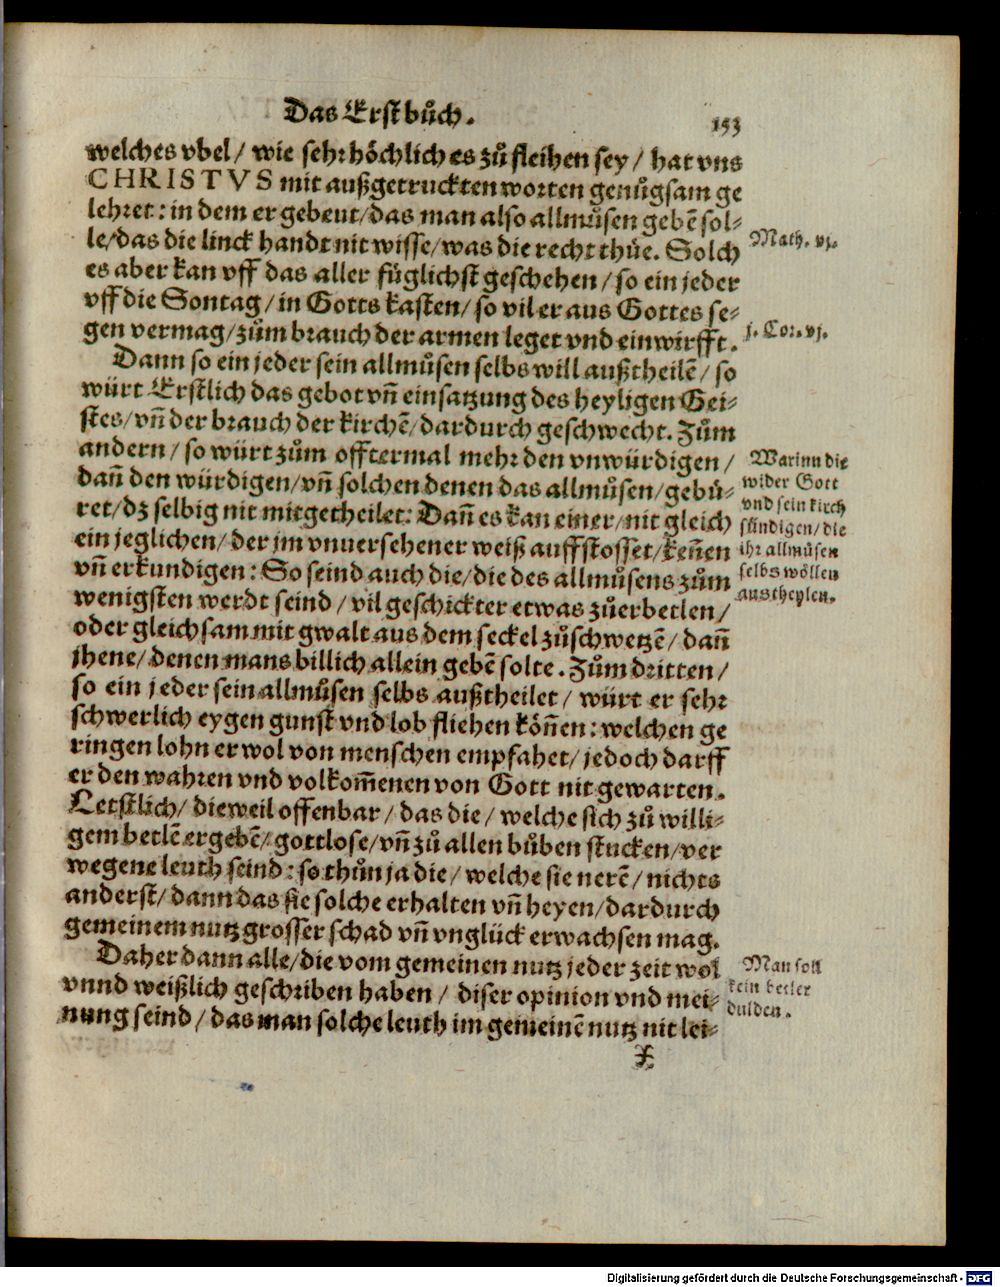 Das Erst bůch.
153
welches vbel/ wie sehr höchlich es zů fleihen sey/ hat vns
CHRISTVS mit außgetruckten worten genůgsam ge
lehret: in dem er gebeut/das man also allmůsen gebē sol-
le/das die linck handt nit wisse/was die recht thüe. Solch
Math. vj.
es aber kan vff das aller füglichst geschehen/ so ein jeder
vff die Sontag/ in Gotts kasten/ so vil er aus Gottes se-
gen vermag/zům brauch der armen leget vnd einwirfft.
j. Cor. vj.
Dann so ein jeder sein allmůsen selbs will außtheilē/ so
würt Erstlich das gebot vñ einsatzung des heyligen Gei-
stes/vñ der brauch der kirchē/dardurch geschwecht. Zům
andern/ so würt zům offtermal mehr den vnwürdigen/
dañ den würdigen/vñ solchen denen das allmůsen/gebü-
ret/dz selbig nit mitgetheilet: Dañ es kan einer/nit gleich
ein jeglichen/ der jm vnuersehener weiß auffstosset/keñen
vñ erkundigen: So seind auch die/die des allmůsens zům
wenigsten werdt seind/ vil geschickter etwas zůerbetlen/
Warinn die
wider Gott
vnd sein kirch
sündigen/die
ihr allmůsen
selbs wöllen
austheylen.
oder gleichsam mit gwalt aus dem seckel zůschwetzē/ dañ
jhene/ denen mans billich allein gebē solte. Zům dritten/
so ein jeder sein allmůsen selbs außtheilet/ würt er sehr
schwerlich eygen gunst vnd lob fliehen köñen: welchen ge
ringen lohn er wol von menschen empfahet/ jedoch darff
er den wahren vnd volkom̄enen von Gott nit gewarten.
Letstlich/ dieweil offenbar/ das die/ welche sich zů willi-
gem betlē ergebē/ gottlose/vñ zů allen bůben stucken/ver
wegene leuth seind: so thůn ja die/ welche sie nerē/ nichts
anderst/ dann das sie solche erhalten vñ heyen/dardurch
gemeinem nutz grosser schad vñ vnglück erwachsen mag.
Daher dann alle/die vom gemeinen nutz jeder zeit wol
vnnd weißlich geschriben haben/ diser opinion vnd mei-
nung seind/ das man solche leuth im gemeinē nutz nit lei-
Man soll
kein betler
dulden.
X
Digitalisierung gefördert durch die Deutsche Forschungsgemeinschaft - DFG